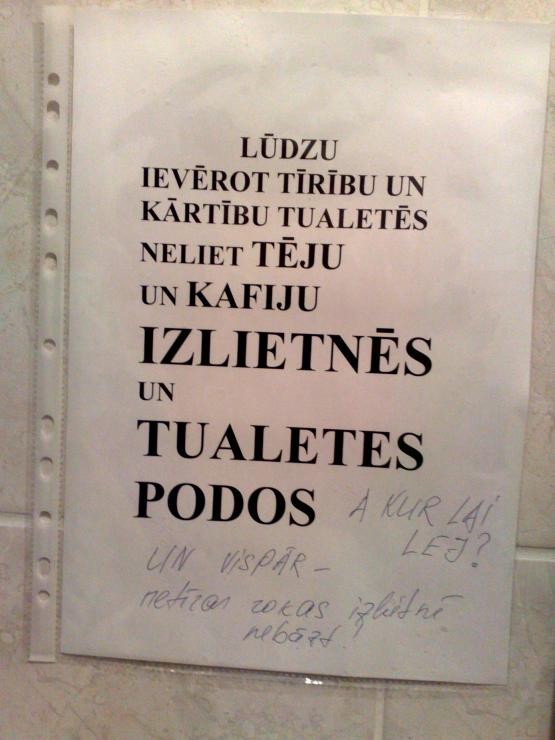 LŪDZU
IEVĒROT TĪRĪBU UN
KĀRTĪBU TUALETĒS
NELIET TĒJU
UN KAFIJU
IZLIETNĒS
UN
TUALETES
PODOS
A KUR LAI
LEJ?
UN VISPĀR –
netīras rokas izlietnē
nebāzt!